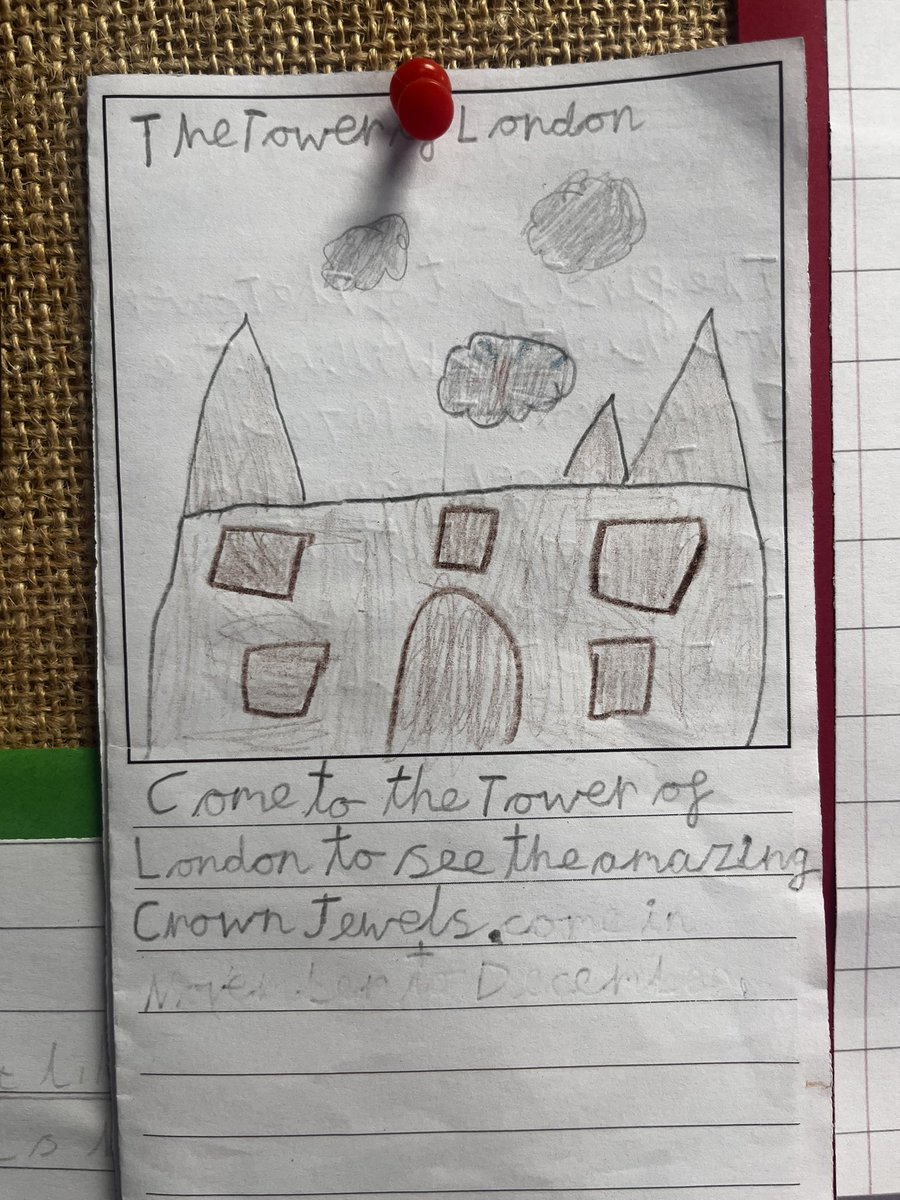 The Tower of London
Come to the Tower of
London to see the amazing
Crown Jewels. come in
November to December.